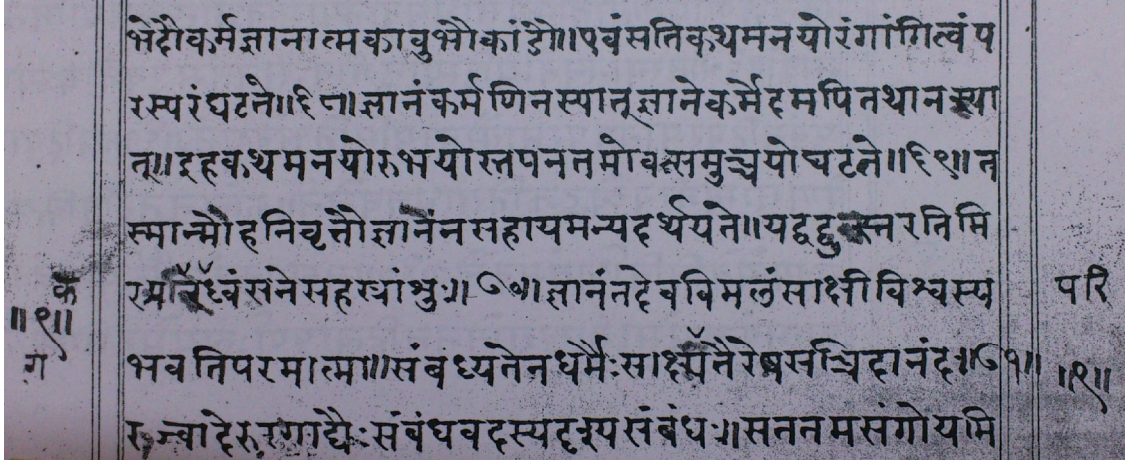 भेदौकर्मज्ञानात्मकावुभौकांडौ॥एवंसतिकथमनयोरंगांगित्वंप
रस्परंघटते॥६८॥ज्ञानंकर्मणिनस्यात्ज्ञानेकर्मेदमपितथानस्या
त्॥इहकथमनयोरुभयोस्तपनतमोवत्समुच्चयोघटते॥६९॥त
स्मान्मोहनिवृत्तौज्ञानंनसहायमन्यदर्थयते॥यद्वद्घनतरतिमि
रप्रध्वंसनेसहस्रांशुः॥७०॥ज्ञानंतदेवविमलंसाक्षीविश्वस्य
भवतिपरमात्मा॥संबध्यतेनधर्मैःसाक्ष्यैतैरेषसच्चिदानंदः॥७१॥
रज्ज्वादेरुरगाद्यैःसंबंधवदस्यदृश्यसंबंधः॥सततमसंगोयमि
॥९॥
ग
परि
॥९॥